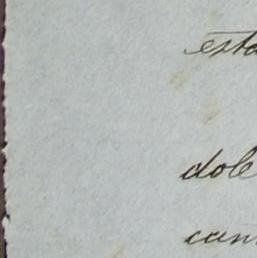 esta
dole
cam